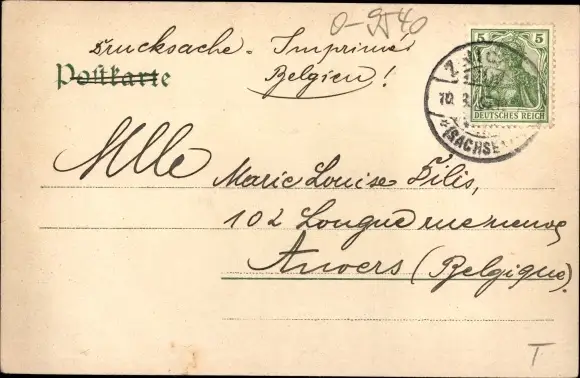 0-9540
Drucksache - Imprimé
Postkarte Belgien!
5 5
DEUTSCHES REICH
ZWICKAU
10. 3.
(SACHSEN)
Mlle Marie Louise Filis,
102 Longue rue neuve
Anvers (Belgique).
T